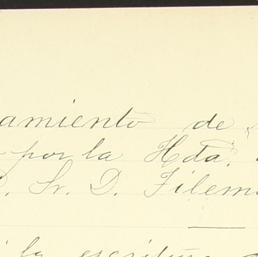 amiento de
por la Hda.
Sr. D. Filem
i la escritura